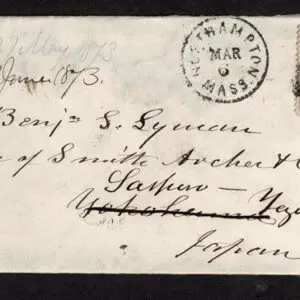 27 May 1873
June 1873.
NORTHAMPTON
MAR
6
MASS.
Benj. S. Lyman
e of Smith Archer & C
Satsuro — Yez
Yokohama
Japan